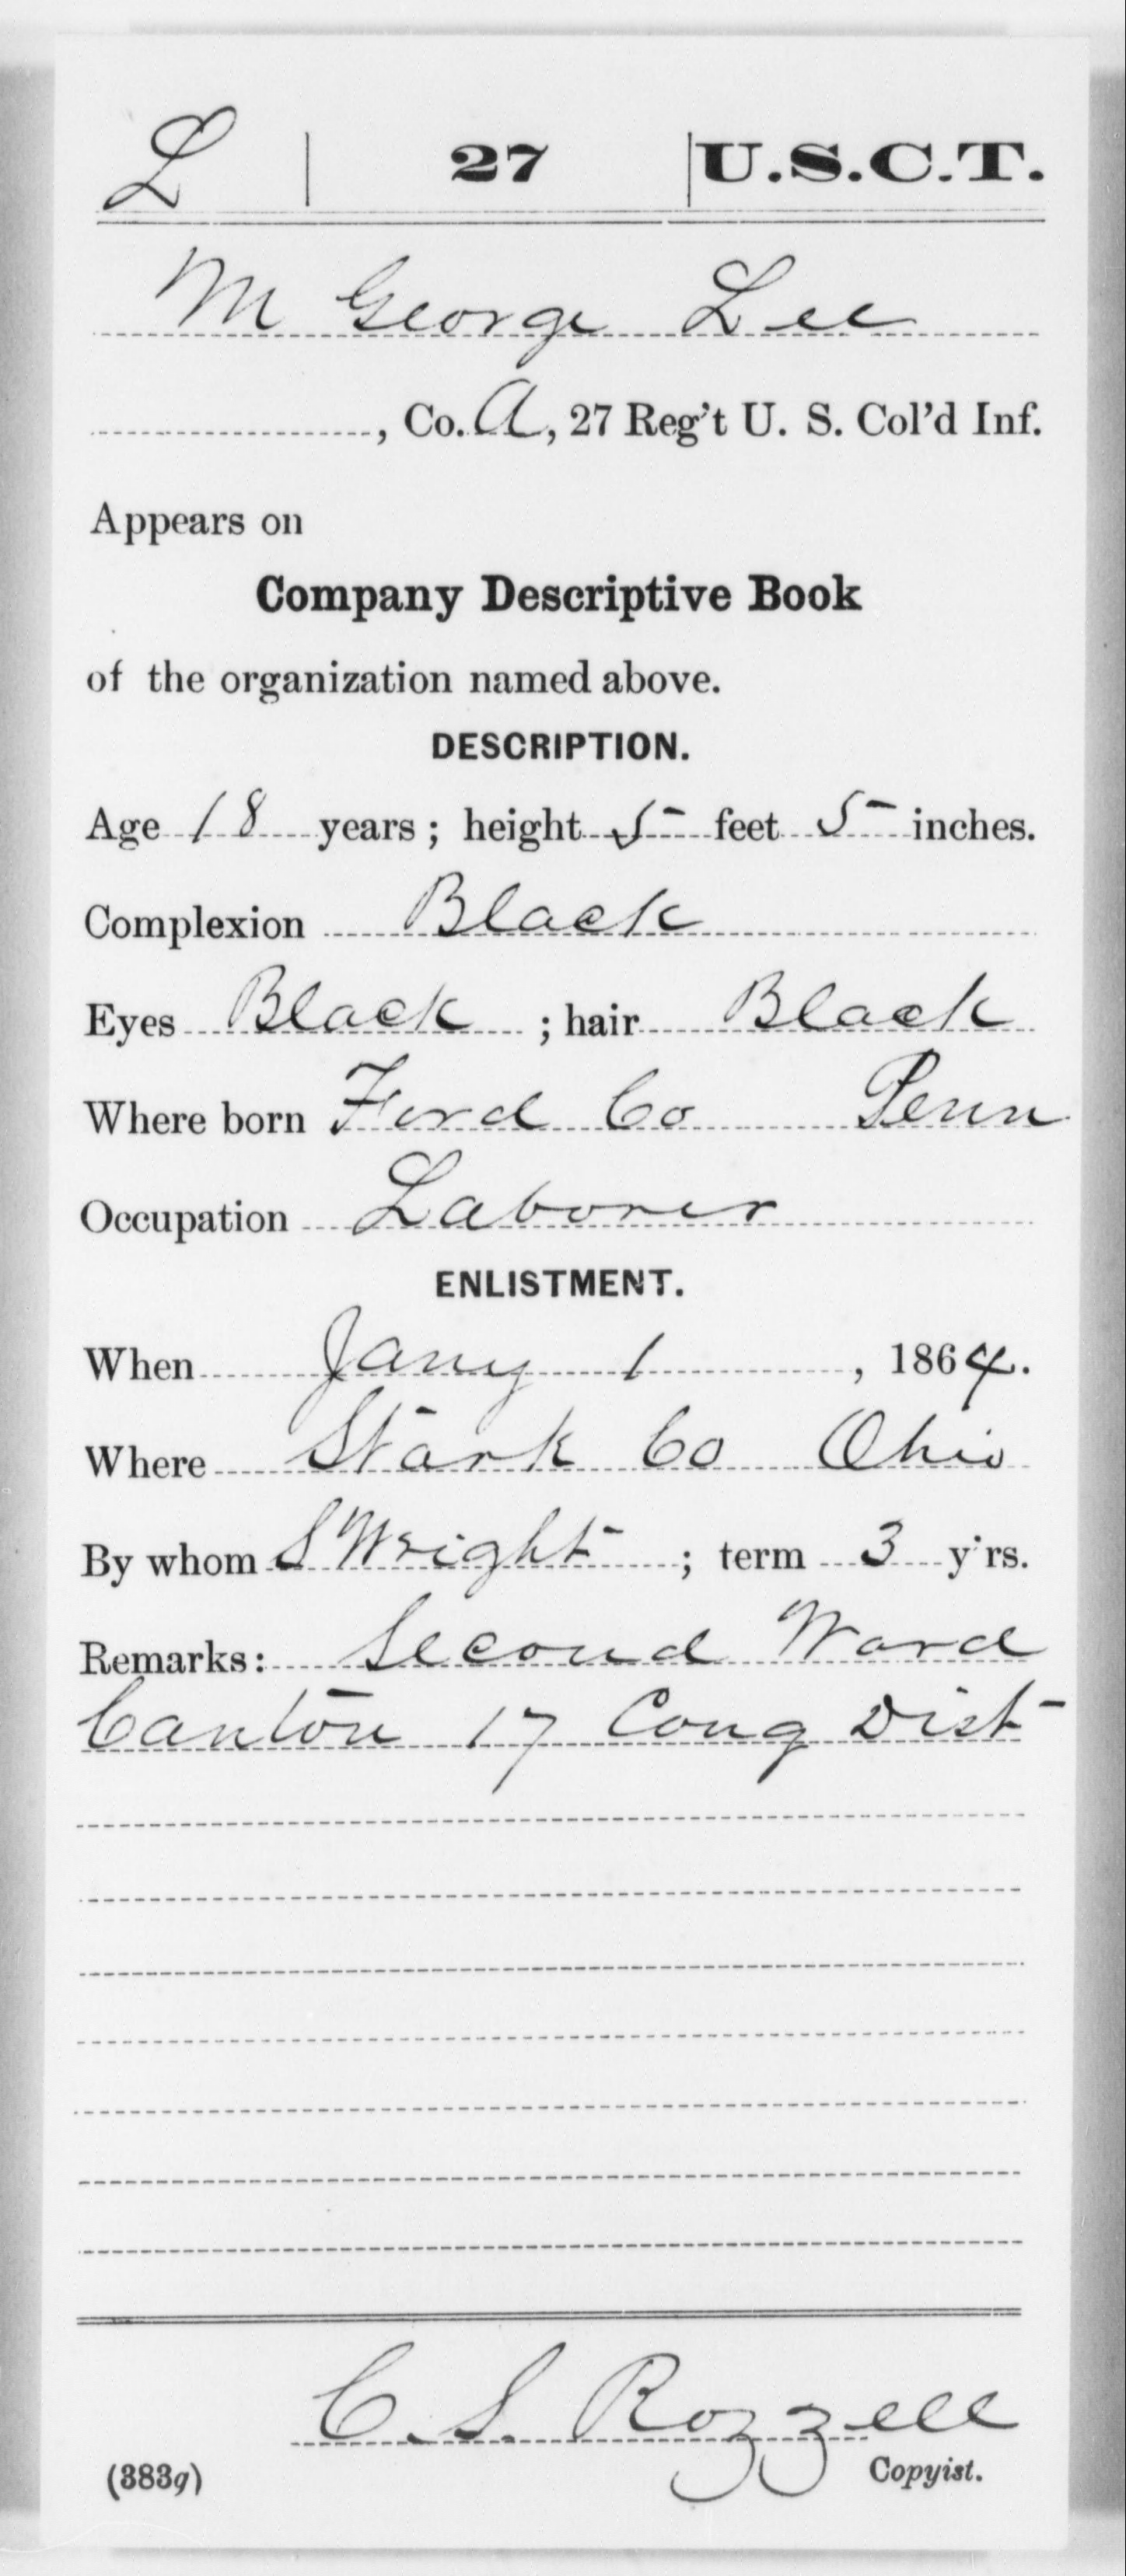 L | 27 | U.S.C.T.
M George Lee
, Co. A, 27 Reg't U. S. Col'd Inf.
Appears on
Company Descriptive Book
of the organization named above.
DESCRIPTION.
Age 18 years; height 5 feet 5 inches.
Complexion Black
Eyes Black ; hair Black
Where born Ford Co Penn
Occupation Laborer
ENLISTMENT.
When Jany 1, 1864.
Where Stark Co Ohio
By whom S Wright ; term 3 y'rs.
Remarks: Second Ward
Canton 17 Cong Dist
C. S. Rozzell
(383g) Copyist.